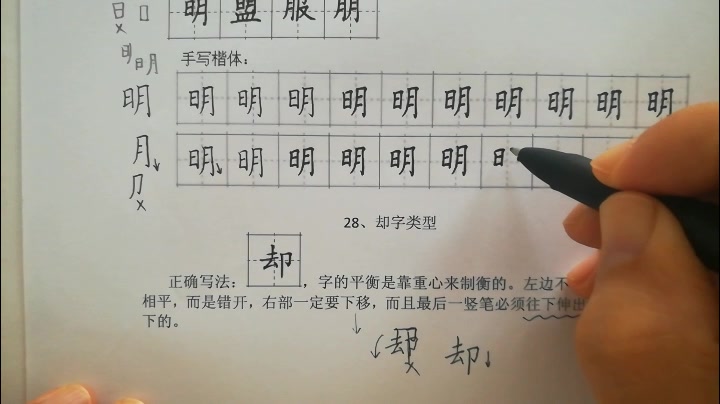 日
明 盟 服 朋
明 明
手写楷体：
明 明 明 明 明 明 明 明 明 明 明
月 明 明 明 明 明 明 日
28、却字类型
却
正确写法： ，字的平衡是靠重心来制衡的。左边不
相平，而是错开，右部一定要下移，而且最后一竖笔必须往下伸出
下的。
却 却